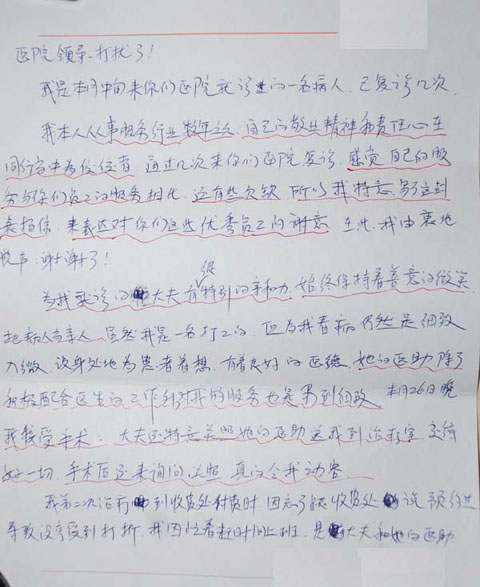 医院领导、打扰了！
我是本月中旬来你们医院就诊的一名病人，已复诊几次
我本人从事服务行业数年之久，自己的敬业精神和责任心在
同行当中为佼佼者，通过几次来你们医院复诊，感觉自己的服
务与你们员工的服务相比，还有些欠缺，所以我特意写了这封
表扬信，来表达对你们这些优秀员工的谢意，在此，我由衷地
说声：谢谢了！
为我就诊的大夫很有特别的亲和力，始终保持着善意的微笑
把病人当亲人，虽然我是一名打工的，但为我看病仍然是细致
入微，设身处地为患者着想，有着良好的医德，她的医助除了
积极配合医生的工作针对我的服务也是周到细致，本月26日晚
我接受手术：大夫还特意关照她的医助送我到治疗室，交待
好一切，手术后还来询问
，真的令我动容
我第二次治疗到收费处付费时，因忘了跟收费处说预约
导致没享受到打折，我因忙着赶时间上班，是大夫和她的医助